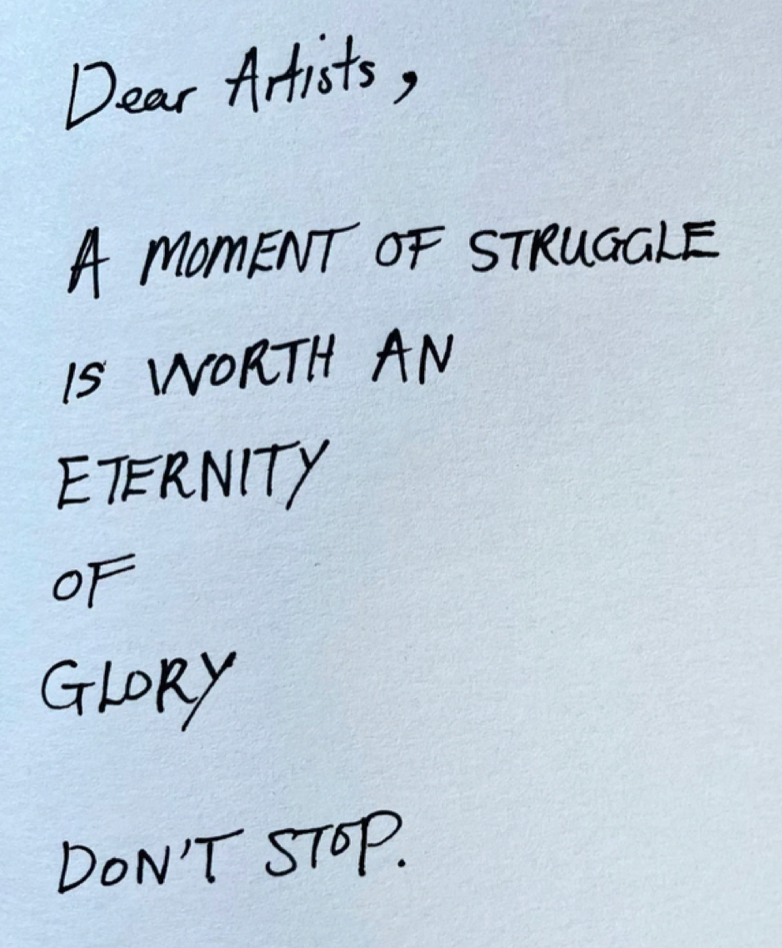 Dear Artists,
A MOMENT OF STRUGGLE
IS WORTH AN
ETERNITY
OF
GLORY
DON'T STOP.